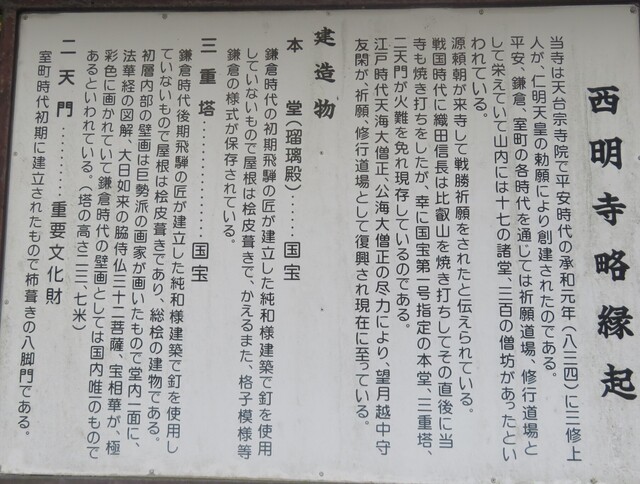 西明寺略縁起
当寺は天台宗寺院で平安時代の承和元年(八三四)に三修上
人が、仁明天皇の勅願により創建されたのである。
平安、鎌倉、室町の各時代を通じては祈願道場、修行道場と
して栄えていて山内には十七の諸堂、三百の僧坊があったとい
われている。
源頼朝が来寺して戦勝祈願をされたと伝えられている。
戦国時代に織田信長は比叡山を焼き打ちしてその直後に当
寺も焼き打ちをしたが、幸に国宝第一号指定の本堂、三重塔、
二天門が火難を免れ現存しているのである。
江戸時代天海大僧正、公海大僧正の尽力により、望月越中守
友閑が、祈願、修行道場として復興され現在に至っている。
建造物
本堂(瑠璃殿)……国宝
鎌倉時代の初期飛騨の匠が建立した純和様建築で釘を使用
していないもので屋根は桧皮葺きで、かえるまた、格子模様等
鎌倉の様式が保存されている。
三重塔…………国宝
鎌倉時代後期飛騨の匠が建立した純和様建築で釘を使用し
ていないもので屋根は桧皮葺きであり、総桧の建物である。
初層内部の壁画は巨勢派の画家が画いたもので堂内一面に、
法華経の図解、大日如来の脇侍仏三十二菩薩、宝相華が、極
彩色に画かれていて鎌倉時代の壁画としては国内唯一のもので
あるといわれている。(塔の高さ二三、七米)
二天門………重要文化財
室町時代初期に建立されたもので杮葺きの八脚門である。